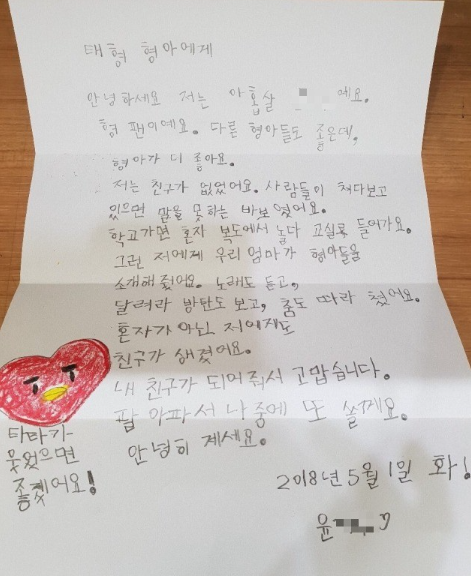 태형 형아에게
안녕하세요 저는 아홉살 예요.
형 팬이예요. 다른 형아들도 좋은데,
형아가 더 좋아요.
저는 친구가 없었어요. 사람들이 쳐다보고
있으면 말을 못하는 바보 였어요.
학교가면 혼자 복도에서 놀다 교실로 들어가요.
그런 저에게 우리 엄마가 형아들을
소개해 줬어요. 노래도 듣고,
달려라 방탄도 보고, 춤도 따라 췄어요.
혼자가 아닌 저에게도
친구가 생겼어요.
내 친구가 되어줘서 고맙습니다.
팔 아파서 나중에 또 쓸게요.
안녕히 계세요.
타타가
웃었으면
좋겠어요!
2018년 5월 1일 화!
윤